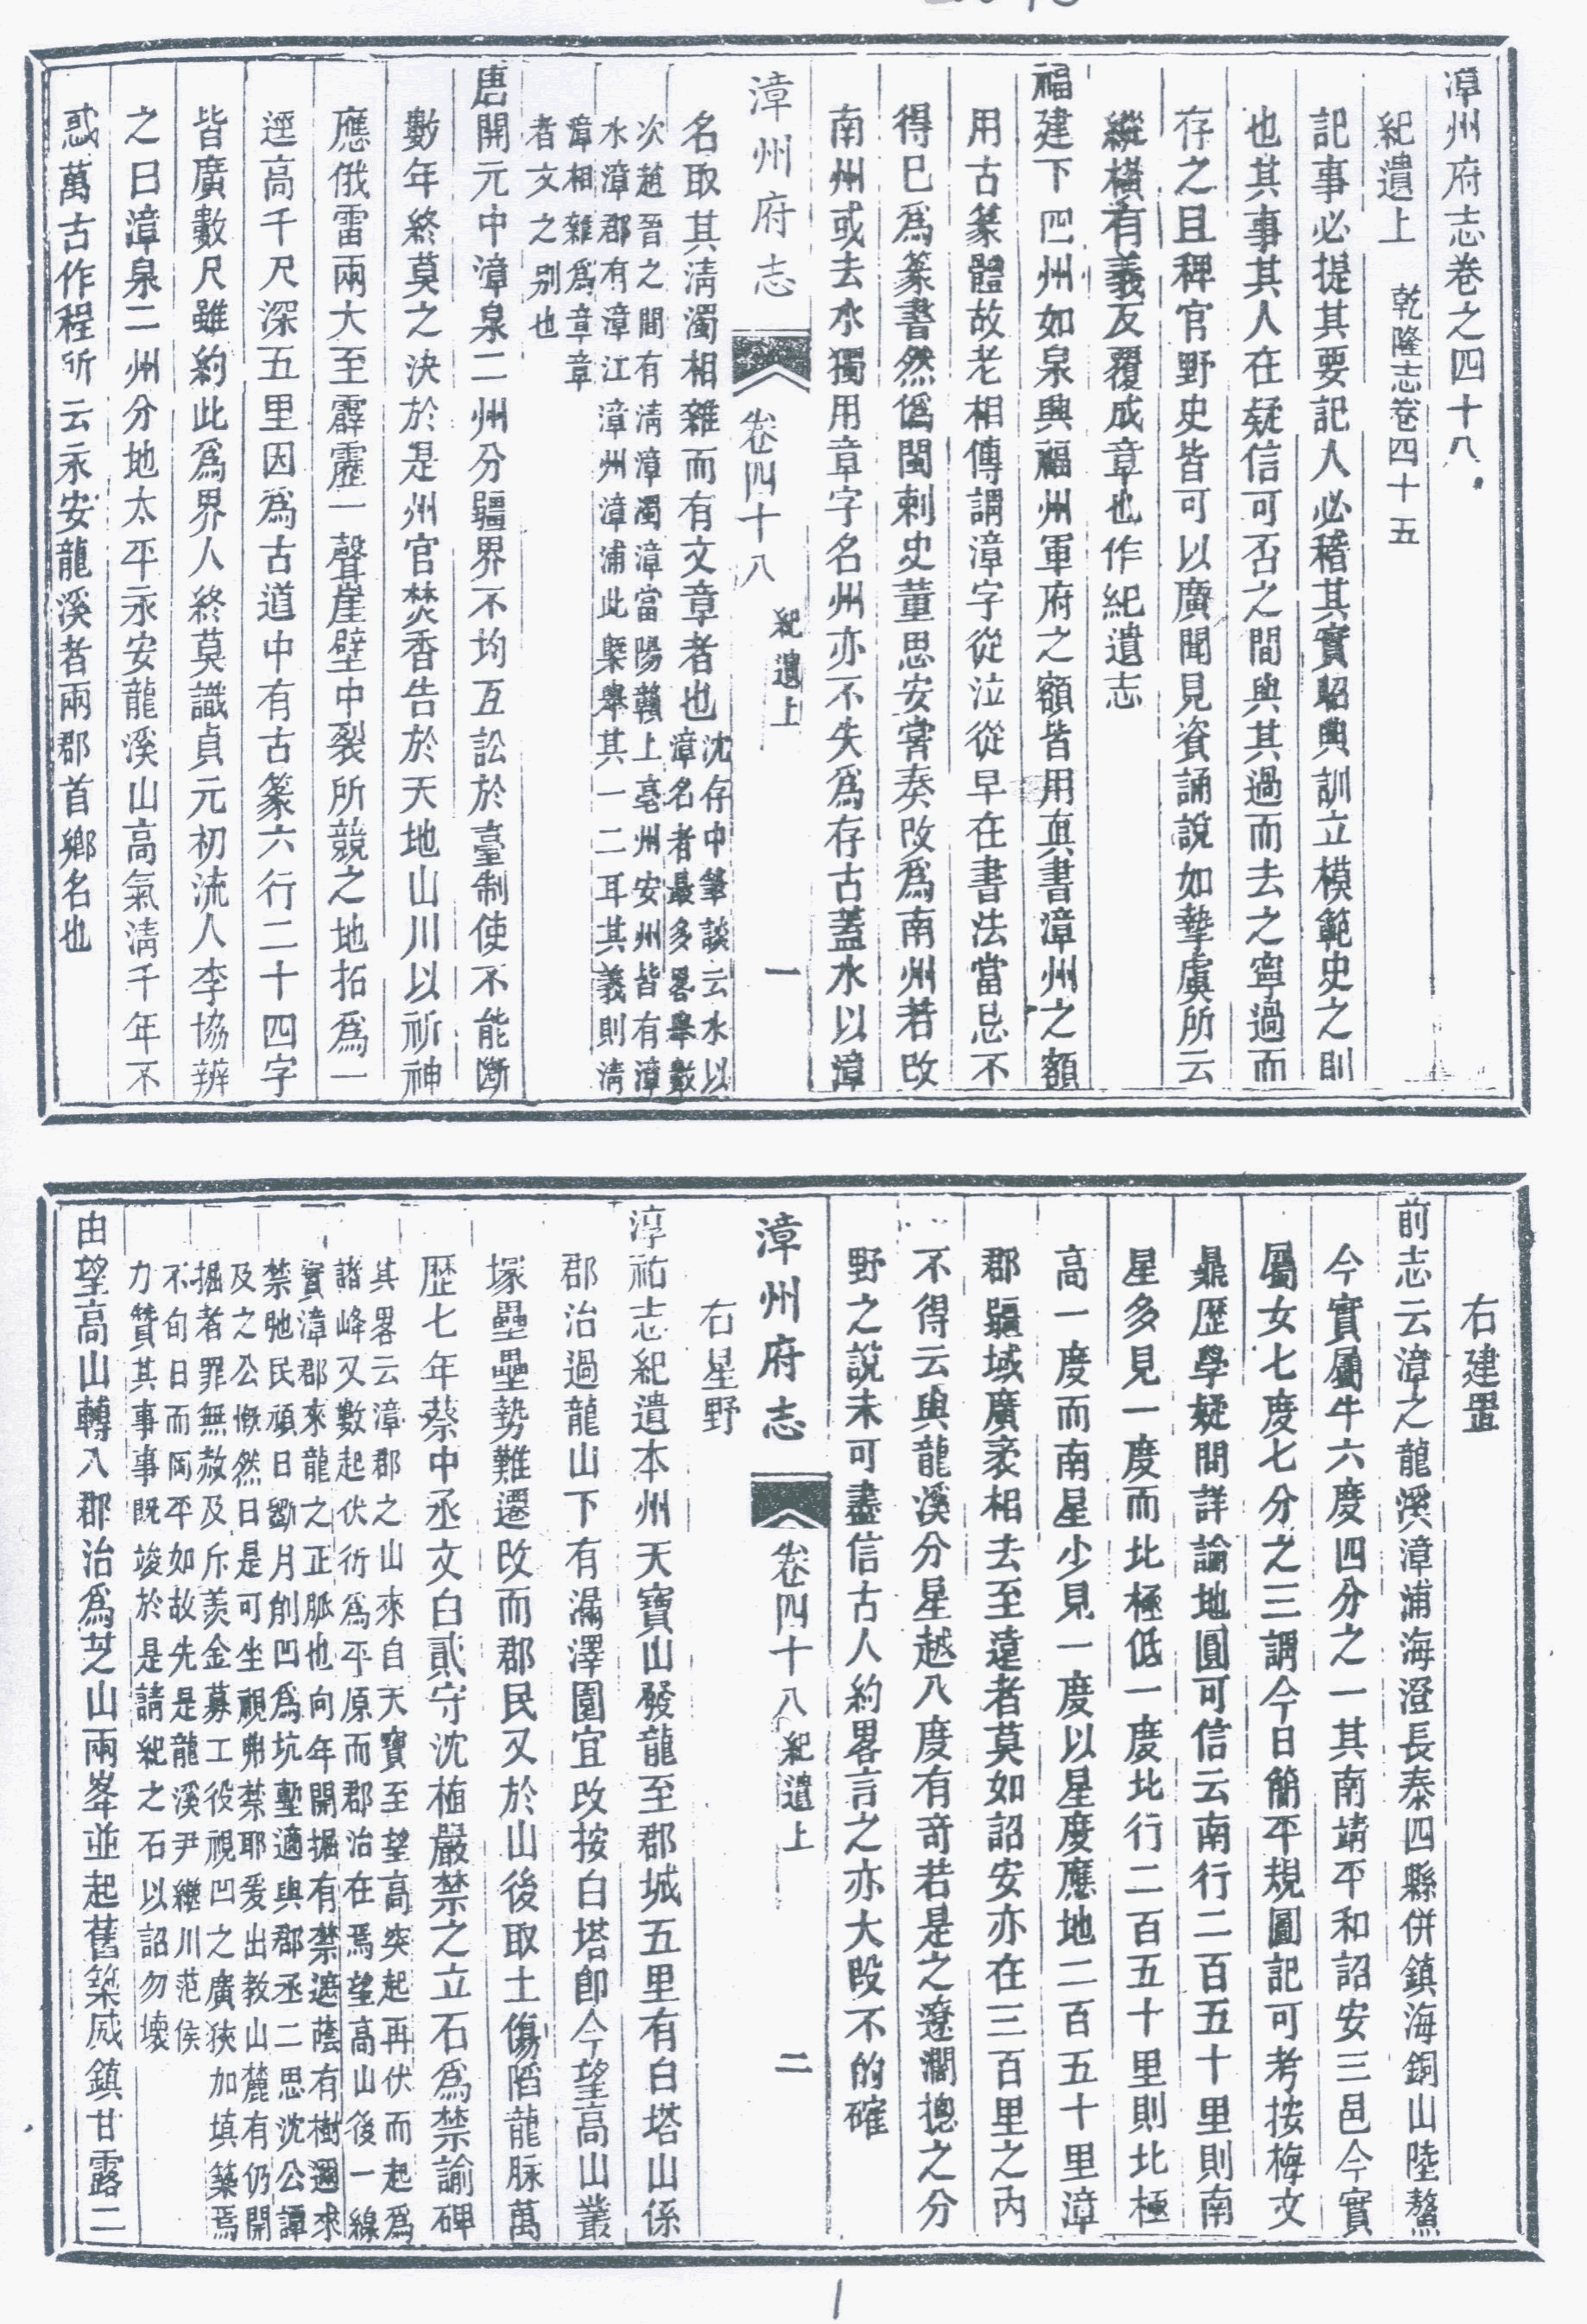 漳州府志卷之四十八
紀遺上　乾隆志卷四十五
記事必提其要記人必稽其實昭典訓立模範史之則
也其事其人在疑信可否之間與其過而去之寧過而
存之且稗官野史皆可以廣聞見資誦說如摯虞所云
縱橫有義反覆成章也作紀遺志
福建下四州如泉興福州軍府之額皆用真書漳州之額
用古篆體故老相傳謂漳字從泣從早在書法當忌不
得已為篆書然偽閩刺史董思安嘗奏改為南州若改
南州或去水獨用章字名州亦不失為存古蓋水以漳
漳州府志　卷四十八　紀遺上　一
名取其清濁相雜而有文章者也沈存中筆談云水以
漳名者最多畧舉數
次趙晉之間有清漳濁漳當陽贛上亳州安州皆有漳
水漳郡有漳江漳州漳浦此槩舉其一二耳其義則清
漳相雜為章章
者文之别也
唐開元中漳泉二州分疆界不均互訟於臺制使不能斷
數年終莫之決於是州官焚香告於天地山川以祈神
應俄雷雨大至霹靂一聲崖壁中裂所競之地拓為一
逕高千尺深五里因為古道中有古篆六行二十四字
皆廣數尺雖約此為界人終莫識貞元初流人李協辨
之曰漳泉二州分地太平永安龍溪山高氣清千年不
惑萬古作程所云永安龍溪者兩郡首鄉名也
右建置
前志云漳之龍溪漳浦海澄長泰四縣併鎮海銅山陸鰲
今實屬牛六度四分之一其南靖平和詔安三邑今實
屬女七度七分之三謂今日簡平規圖記可考按梅文
鼎歷學疑問詳論地圓可信云南行二百五十里則南
星多見一度而北極低一度北行二百五十里則北極
高一度而南星少見一度以星度應地二百五十里漳
郡疆域廣袤相去至遠者莫如詔安亦在三百里之內
不得云與龍溪分星越八度有奇若是之遼濶摠之分
野之說未可盡信古人約畧言之亦大段不的確
漳州府志　卷四十八　紀遺上　二
右星野
淳祐志紀遺本州天寶山發龍至郡城五里有白塔山係
郡治過龍山下有漏澤園宜改按白塔即今望高山叢
塚壘壘勢難遷改而郡民又於山後取土傷陷龍脉萬
歷七年蔡中丞文白貳守沈植嚴禁之立石為禁諭碑
其畧云漳郡之山來自天寶至望高突起再伏而起為
諸峰又數起伏衍為平原而郡治在焉望高山後一線
實漳郡來龍之正脈也向年開掘有禁遮蔭有樹邇來
禁弛民頑日斸月削凹為坑塹適與郡丞二思沈公譚
及之公慨然曰是可坐視弗禁耶爰出教山麓有仍開
掘者罪無赦及斥羨金募工役視凹之廣狹加填築焉
不旬日而岡平如故先是龍溪尹繼川范侯
力贊其事事既竣於是請紀之石以詔勿壞
由望高山轉入郡治為芝山兩峯並起舊築威鎮甘露二
1